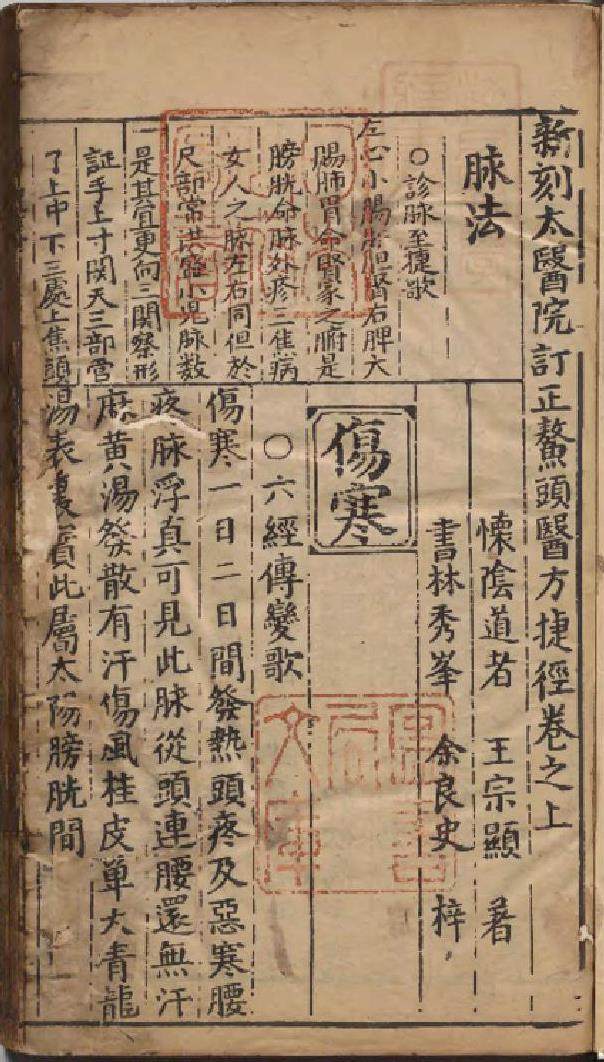 新刻太醫院訂正鰲頭醫方捷徑卷之上
脉法
○診脉至捷歌
左心小腸肝胆腎右脾大
腸肺胃命賢家之腑是
膀胱命脉外疹三焦病
女人之脉左右同但於
尺部常洪盛小児脉数
一是其骨更向三関察形
証手上寸関天三部當
了上中下三處上焦頭
懐陰道者 王宗顯 著
書林秀峯 余良史 梓
傷寒
○六經傳變歌
傷寒一日二日間發熱頭疼及惡寒腰
疼脉浮真可見此脉從頭連腰還無汗
麻黄湯發散有汗傷風桂皮单大青龍
湯表裏實此屬太陽膀胱間